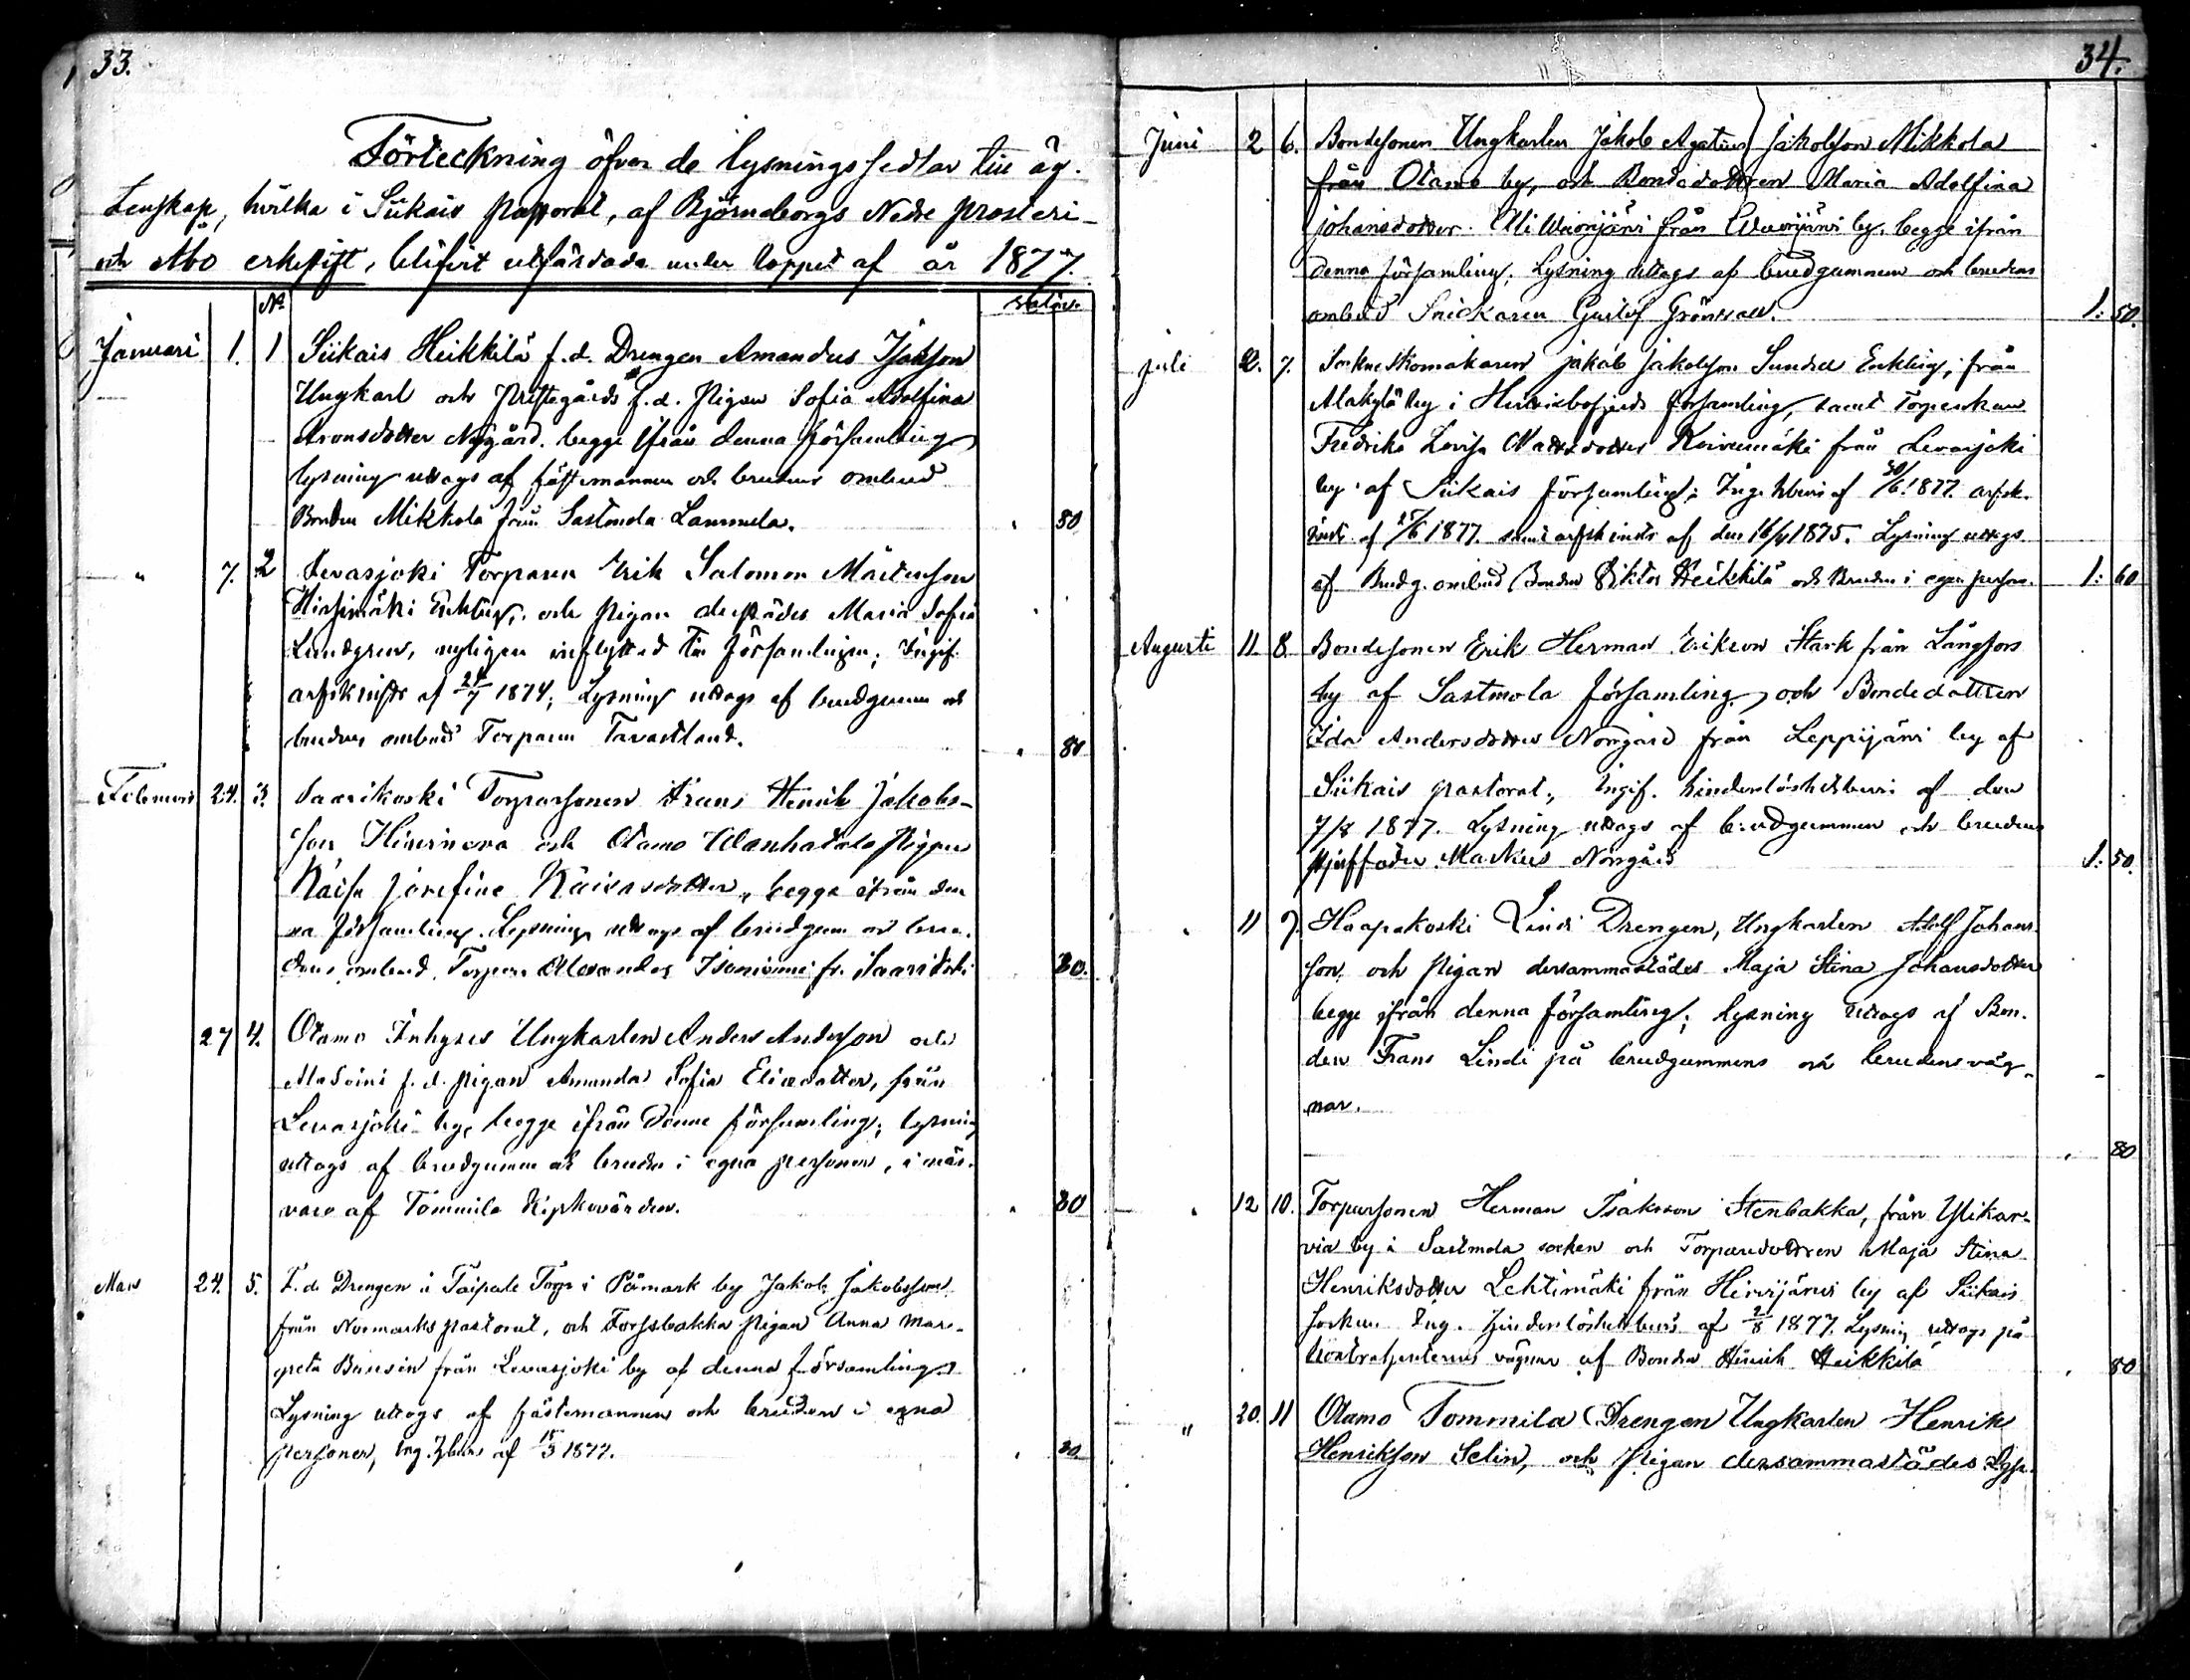 33.
Förteckning öfver de lysningssedlar till äg-
tenskap, hvilka i Siikais pastorat, af Björneborgs Nedre prosteri
och Åbo erkestift, blifvit utfärdade under loppet af år 1877.
No
Januari 1. 1 Siikais Heikkilä f.d. Drengen Amandus Isakson
Ungkarl och Prestgårds f.d. Pigan Sofia Adolfina
Aronsdotter Nygård, begge ifrån denna församling,
lysning uttogs af fästemannen och brudens ombud
Bonden Mikkola från Sastmola Lammela. 80
" 7. 2 Levasjoki Torparen Erik Salomon Mårtensson
Hirsimäki Enkling, och Pigan derstädes Maria Sofia
Lundgren, nyligen inflyttad till församlingen; Ingif.
arfskifts af 24/7 1874; Lysning uttogs af brudgummen och
brudens ombud Torparen Tavastland. 80
Februari 24. 3. Saarikoski Torparsonen Frans Henrik Jakobs-
son Hirvineva och Otamo Wanhatalo Pigan
Kaisa Josefina Kaisasdotter, begge ifrån den-
na församling. Lysning uttogs af brudgum och bru-
dens ombud Torparn Alexander Isoniemi fr. Saarikoski 80.
27 4. Otamo Inhyses Ungkarlen Anders Andersson och
f.d. pigan Amanda Sofia Eliedotter, från
Levasjoki by, begge ifrån denna församling; lysning
uttogs af brudgummen och bruden i egna personer, i när-
varo af Tommila 80
Mars 24. 5. F.d. Drengen i Taipale Torp i Påmark by Jakob Jakobsson
från Norrmarks pastorat, och Forsbakka Pigan Anna Mar-
greta från Levasjoki by af denna församling.
Lysning uttogs af fästemannen och bruden i egna
personer, Ing. af 15/3 1877. 80
34.
Juni 2 6. Bondesonen Ungkarlen Jakob Agatus Jakobsson Mikkola
från Otamo by, och Bondedottren Maria Adolfina
Johansdotter från by, begge ifrån
denna församling. Lysning uttogs af brudgummen och brudens
ombud Snickaren Gustaf Grönvall. 1: 50.
Juli 2. 7. Sockneskomakaren Jakob Jakobsson Sundell Enkling, från
Alakylä by i församling, samt Torparenkan
Fredrika Lovisa Mattsdotter Koivumäki från Levasjoki
by af Siikais församling; Ing. af 30/6 1877. arfsk.
af 25/6 1877. samt arfskifts af den 16/4 1875. Lysning uttogs
af Brudg. ombud Bonden Viktor Heikkilä och Bruden i egen person. 1: 60
Augusti 11 8. Bondesonen Erik Herman Eriksson Stark från Långfors
by af Sastmola församling, och Bondedottren
Ida Andersdotter Norrgård från Leppijärvi by af
Siikais pastorat, Ingif. hinderlöshetsbevis af den
7/8 1877. Lysning uttogs af brudgummen och brudens
styffader Markus Norrgård 1: 50.
" 11 9. Haapakoski Lindi Drengen, Ungkarlen Adolf Johans-
son, och Pigan dersammastädes Maja Stina Johansdotter
begge ifrån denna församling; Lysning uttogs af Bon-
den Frans Lindi på brudgummens och brudens väg-
nar.
80
" 12 10. Torparsonen Herman Isaksson Stenbakka, från Ylikar-
via by i Sastmola socken och Torparedottren Maja Stina
Henriksdotter Lehtimäki från Hirvijärvi by af Siikais
socken. Ing. hinderlöshetsbevis af 2/8 1877. Lysning uttogs på
kontrahenternes vägnar af Bonden Henrik Heikkilä 80
" 20. 11 Otamo Tommila Drengen Ungkarlen Henrik
Henriksson Selin, och Pigan dersammastädes